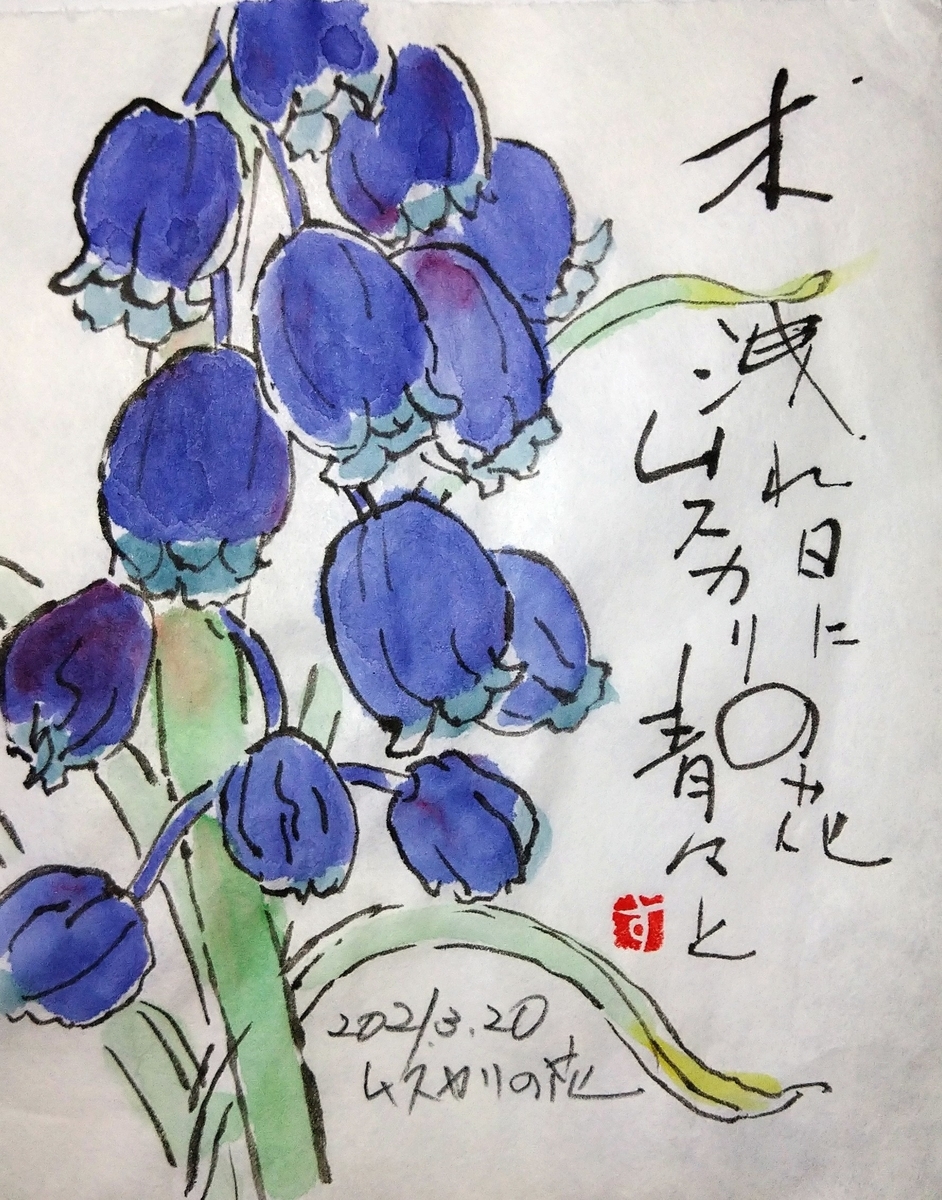 木洩れ日に
ムスカリの花
青々と
す
2021.3.20
ムスカリの花